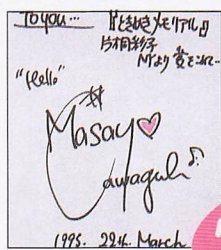 To you…
『ときめきメモリアル』
片桐彩子
NYより愛をこめて…
"Hello"
Masayo
Kawaguchi
1995. 29th. March